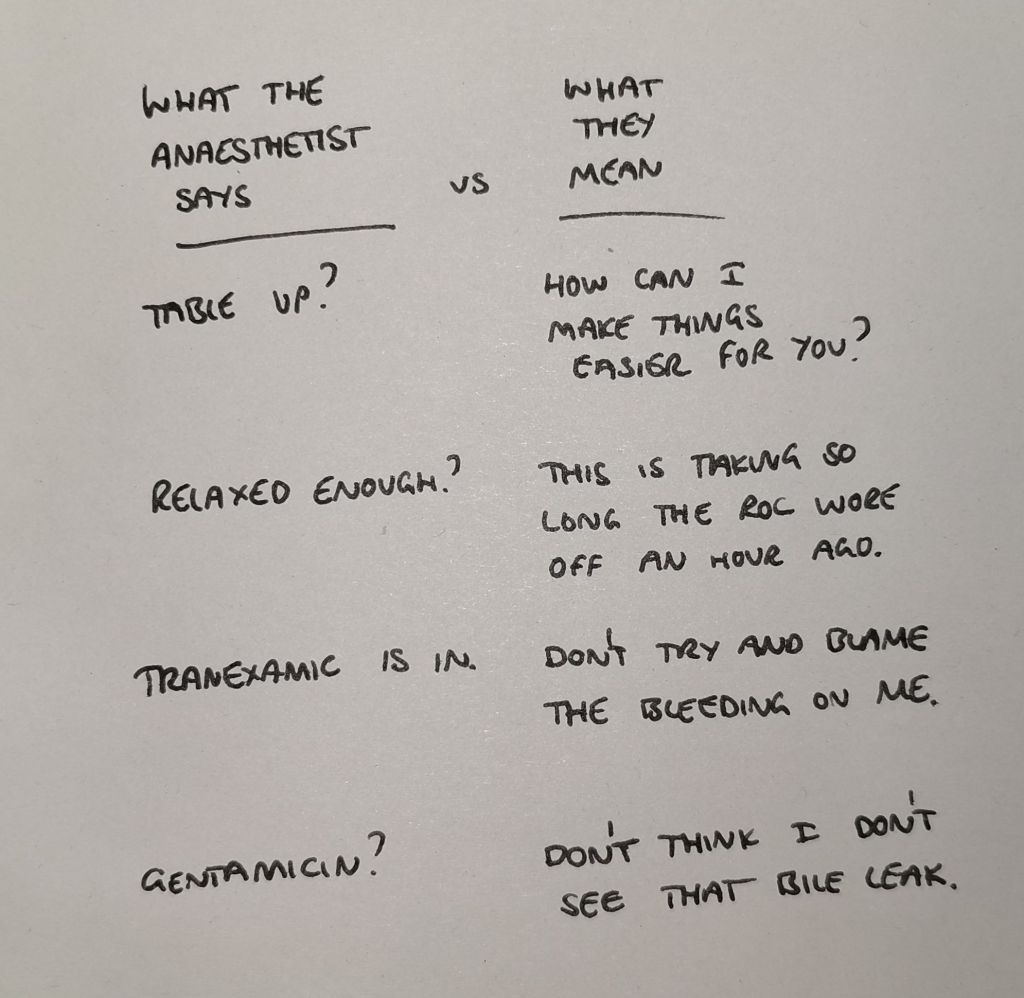 WHAT THE
ANAESTHETIST
SAYS
vs
WHAT
THEY
MEAN
TABLE UP?
HOW CAN I
MAKE THINGS
EASIER FOR YOU?
RELAXED ENOUGH?
THIS IS TAKING SO
LONG THE ROC WORE
OFF AN HOUR AGO.
TRANEXAMIC IS IN.
DON'T TRY AND BLAME
THE BLEEDING ON ME.
GENTAMICIN?
DON'T THINK I DON'T
SEE THAT BILE LEAK.